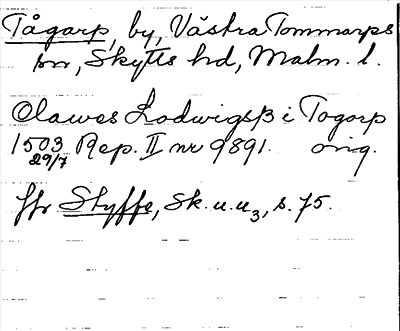 Tågarp, by, Västra Tommarps
sn, Skytts hd, Malm. l.
Olawes Lodwigsß i Togarp
1503 Rep. II nr 9891. orig.
29/7
Jfr Styffe, Sk. u. u3, s. 75.